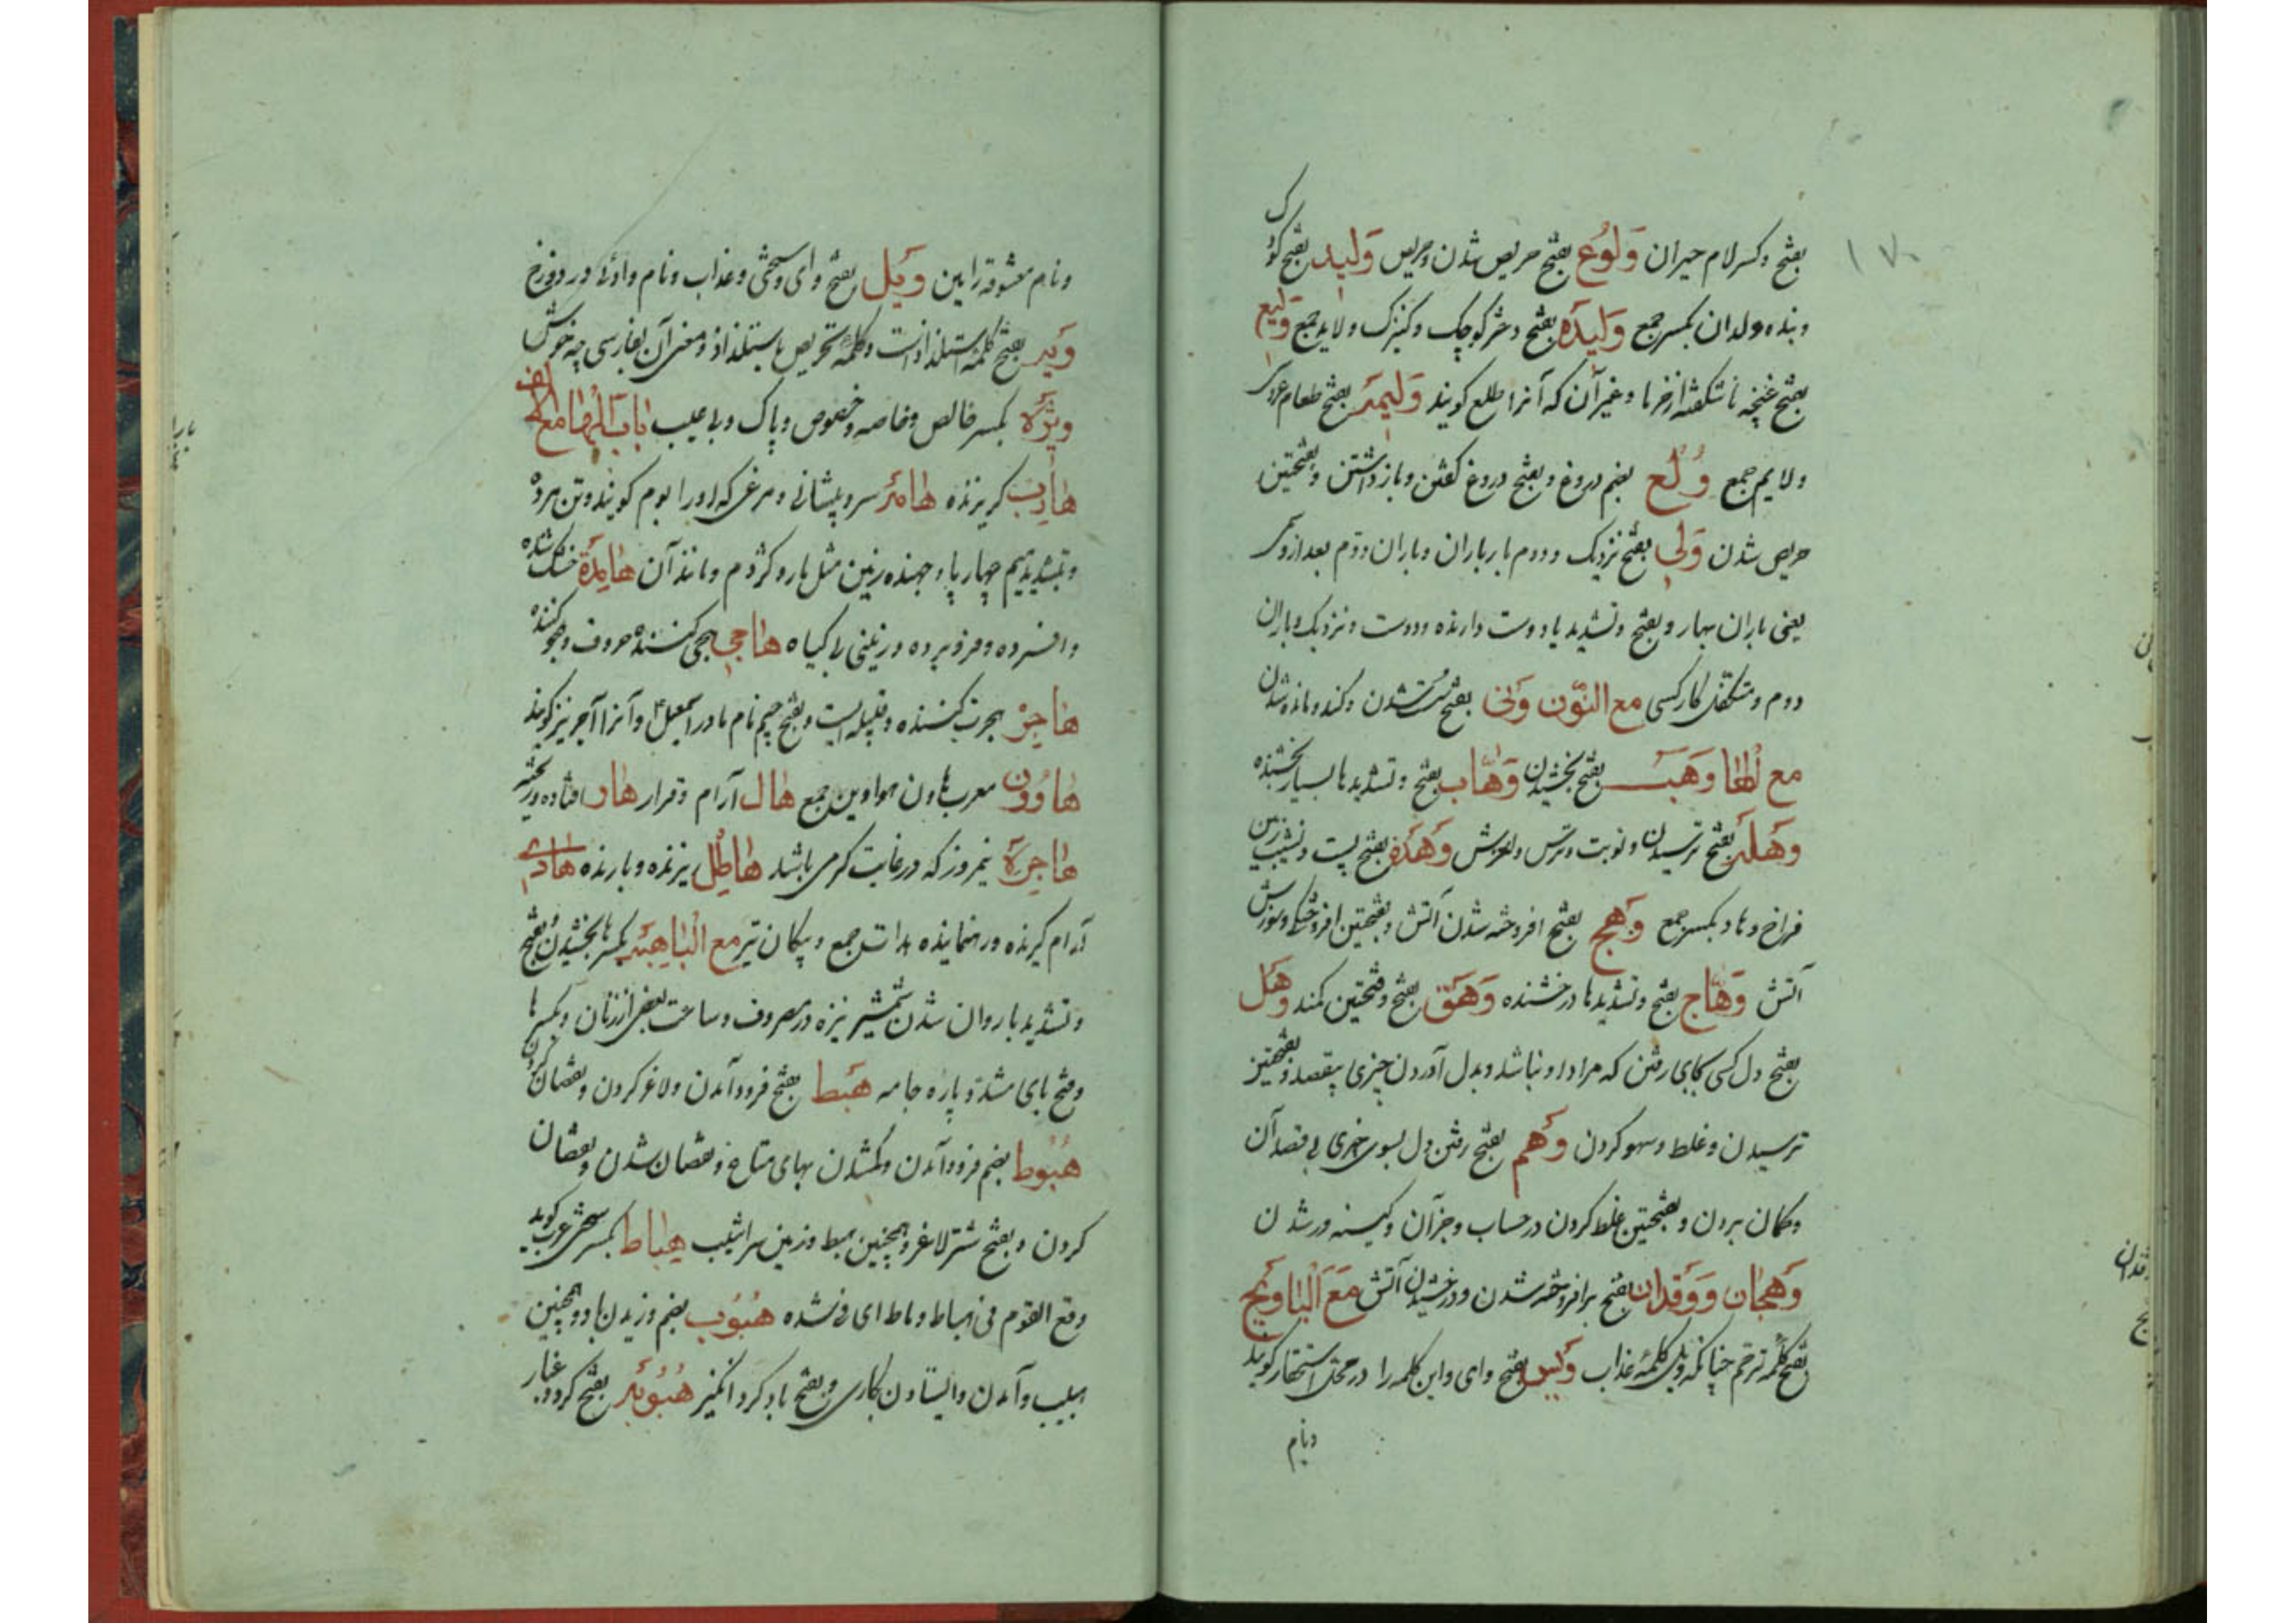 ۱۷۰
بفتح و کسر لام حیران وَلُوع بفتح حریص شدن و حریص وَلید بفتح کودک
و بنده ولدان بکسر جمع وَلیدَه بفتح دختر کوچک و کنیزک ولاید جمع وَلیع
بفتح غنچه ناشکفته از خرما و غیر آن که آنرا طلع کویند وَلیمَه بفتح طعام عروسی
ولایم جمع وَلع بضم دروغ و بفتح دروغ کفتن و بازداشتن و بفتحتین
حریص شدن وَلی بفتح نزدیک و دوم بار باران و باران دوم بعد از وسمی
یعنی باران بهار و بفتح و تشدید یا دوست دارنده و دوست و نزدیک و باران
دوم و متکفل کار کسی مع النّون وَنی بفتح سست شدن و کند و مانده شدن
مع الها وَهَب بفتح بخشیدن وَهّاب بفتح و تشدید ها بسیار بخشنده
وَهلَه بفتح ترسیدن و نوبت و ترس و لغزش وَهدَه بفتح پست و نشیب زمین
فراخ وهاد بکسر جمع وَهج بفتح افروخته شدن آتش و بفتحتین افروختکی و سوزش
آتش وَهّاج بفتح و تشدید ها درخشنده وَهَق بفتح و فتحتین کمند وَهَل
بفتح دل کسی بجای رفتن که مراد او نباشد و بدل آوردن چیزی بیقصد و بفتحتین
ترسیدن و غلط و سهو کردن وَهم بفتح رفتن دل بسوی چیزی بی قصد آن
و کمان بردن و بفتحتین غلط کردن در حساب و جز آن و کینه ور شدن
وَهجان وَوَقدان بفتح برافروخته شدن و درخشیدن آتش مَعَ الیا وَیح
بفتح کلمه ترحم چنانکه ویل کلمه عذاب وَیس بفتح وای و این کلمه را در محل استحقار کویند
و نام
و نام معشوقه رامین وَیل بفتح وای و سختی و عذاب و نام وادئی در دوزخ
وَیه بفتح کلمه استلذاذ است و کلمه تحریص باستلذاذ و معنی آن بفارسی چه خوش
ویژَه بکسر خالص و خاصه و خصوص و پاک و بی عیب باب الها مع الالف
هارِب کریزنده هامَه سر و پیشانی و مرغی که او را بوم کویند و تن مرده
و بتشدید میم چهارپا و جهنده زمین مثل مار و کژدم و مانند آن هامِدَه خشک شده
و افسرده و فرو برده و زمینی بی کیاه هاجی هجی کننده حروف و هجو کننده
هاجِر هجرت کننده و قبیله ایست و بفتح جیم نام مادر اسمعیل و آنرا آجر نیز کویند
هاوُون معرب هاون هواوین جمع هال آرام و قرار هار افتاده و ریخته
هاجِرَة نیمروز که در غایت کرمی باشد هاطِل ریزنده و بارنده هادی
آرام کیرنده و رهنماینده هدات جمع و پیکان تیر مع البا هبَه بکسر ها بخشیدن و بفتح
و تشدید با روان شدن شمشیر نیزه در مصروف و ساعت بعضی از زنان و بکسر ها
و فتح بای مشدد پاره جامه هَبط بفتح فرود آمدن و لاغر کردن و نقصان کردن
هُبُوط بضم فرود آمدن و کم شدن بهای متاع و نقصان شدن و نقصان
کردن و بفتح شتر لاغر و همچنین هبط و زمین سراشیب هِیاط بکسر سختی عرب کوید
وقع القوم فی هیاط و میاط ای فی شدة هُبُوب بضم وزیدن باد و همچنین
هبیب و آمدن و ایستادن بکاری و بفتح باد کرد انکیز هُبُوبَه بفتح کرد و غبار